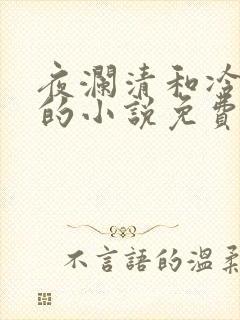 夜瀾清和冷
的小說免費
不言語的溫柔